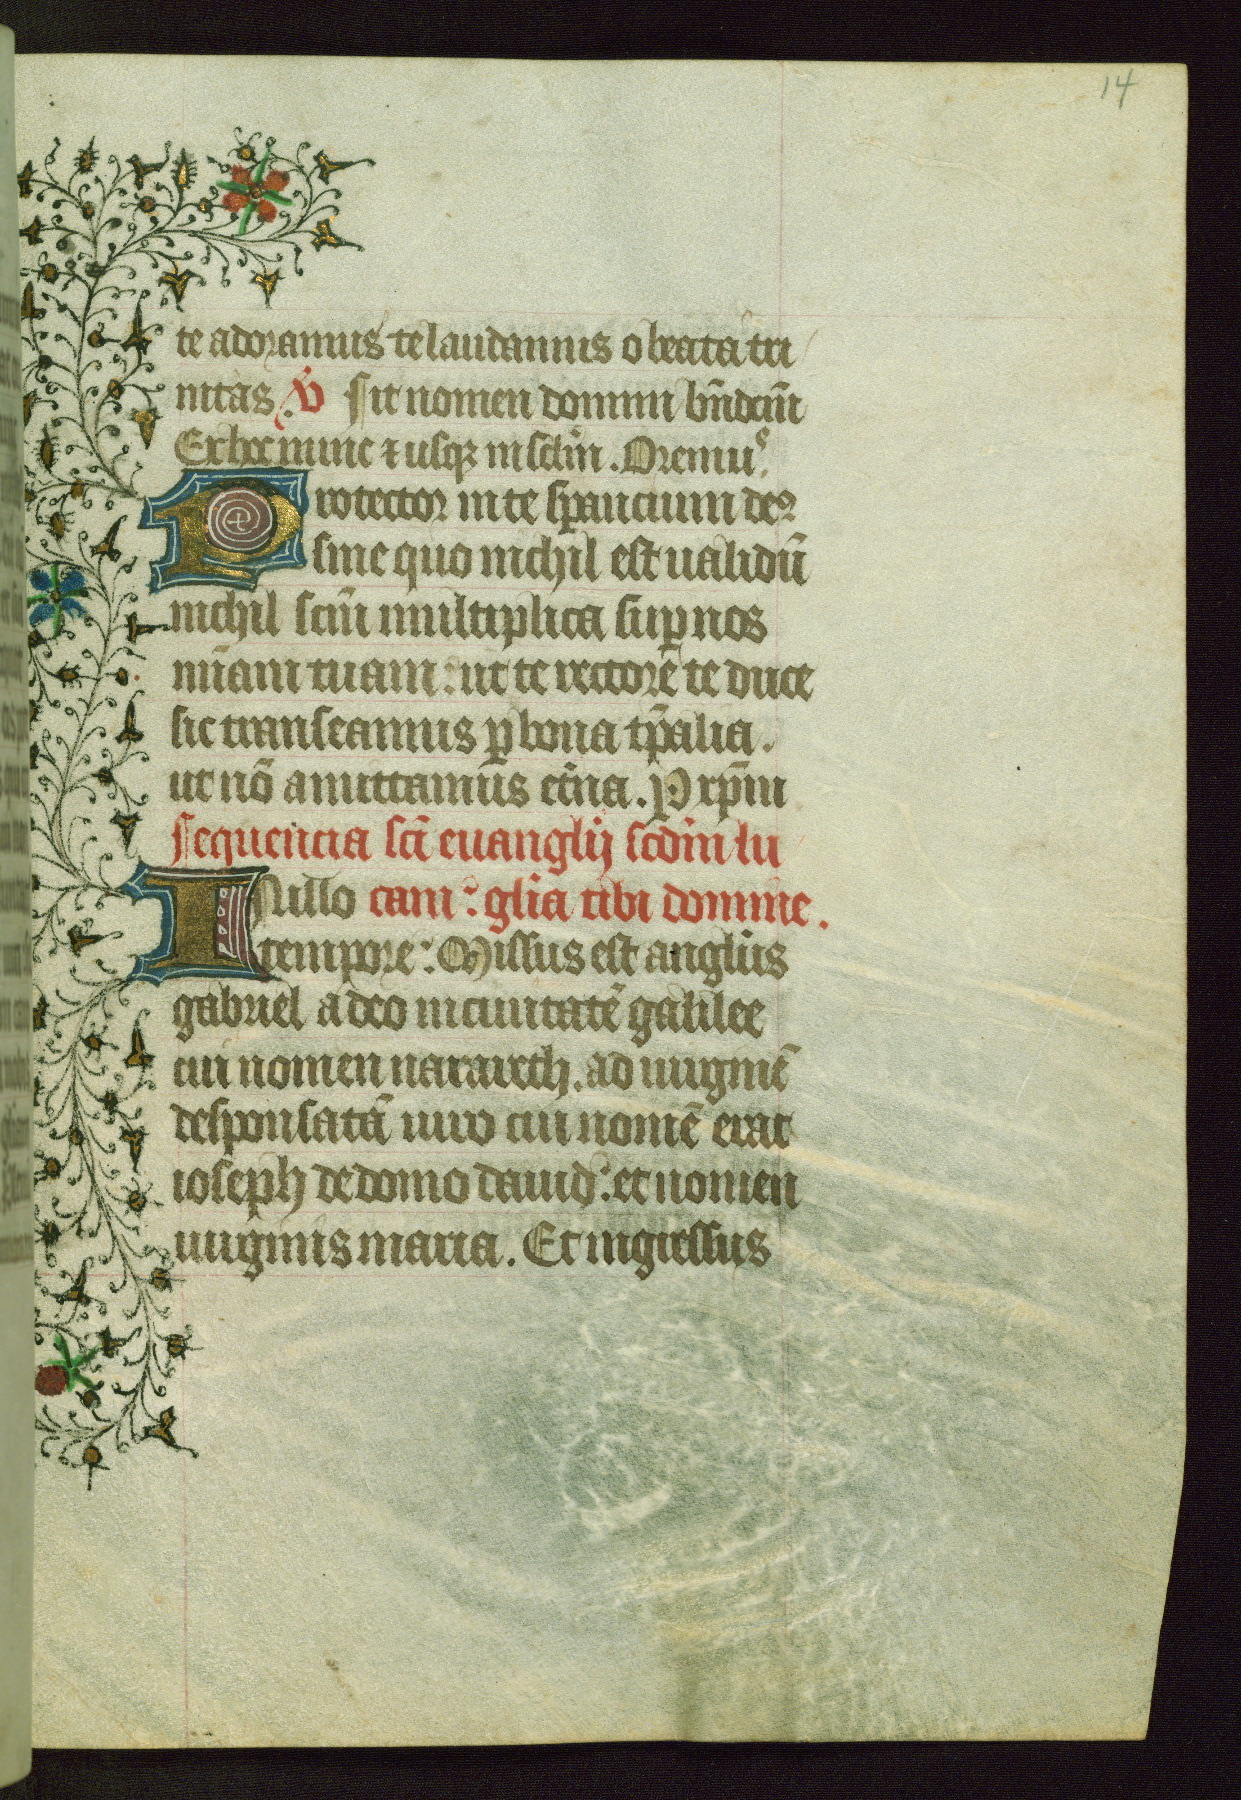 14
te adoramus te laudamus o beata tri
nitas. V Sit nomen domini bn̄dictū
Ex hoc nunc ⁊ usq in sclm̄. Oremus
Protector in te sꝑancium deꝰ
sine quo nichil est ualidū
nichil scm̄ multiplica suꝑ nos
mīam tuam: ut te rectorē te duce
sic transeamus ꝑ bona tp̄alia.
ut nō amittamus et̄na. P xpm̄
Sequencia sc̄i euanglij scdm̄ lu
In illo cam: gl̄ia tibi domine.
tempore: Missus est anglus
gabriel a deo in ciuitatē galilee
cui nomen nazareth. ad uirginē
desponsatā uiro cui nomē erat
ioseph de domo dauid: et nomen
uirginis maria. Et ingressus